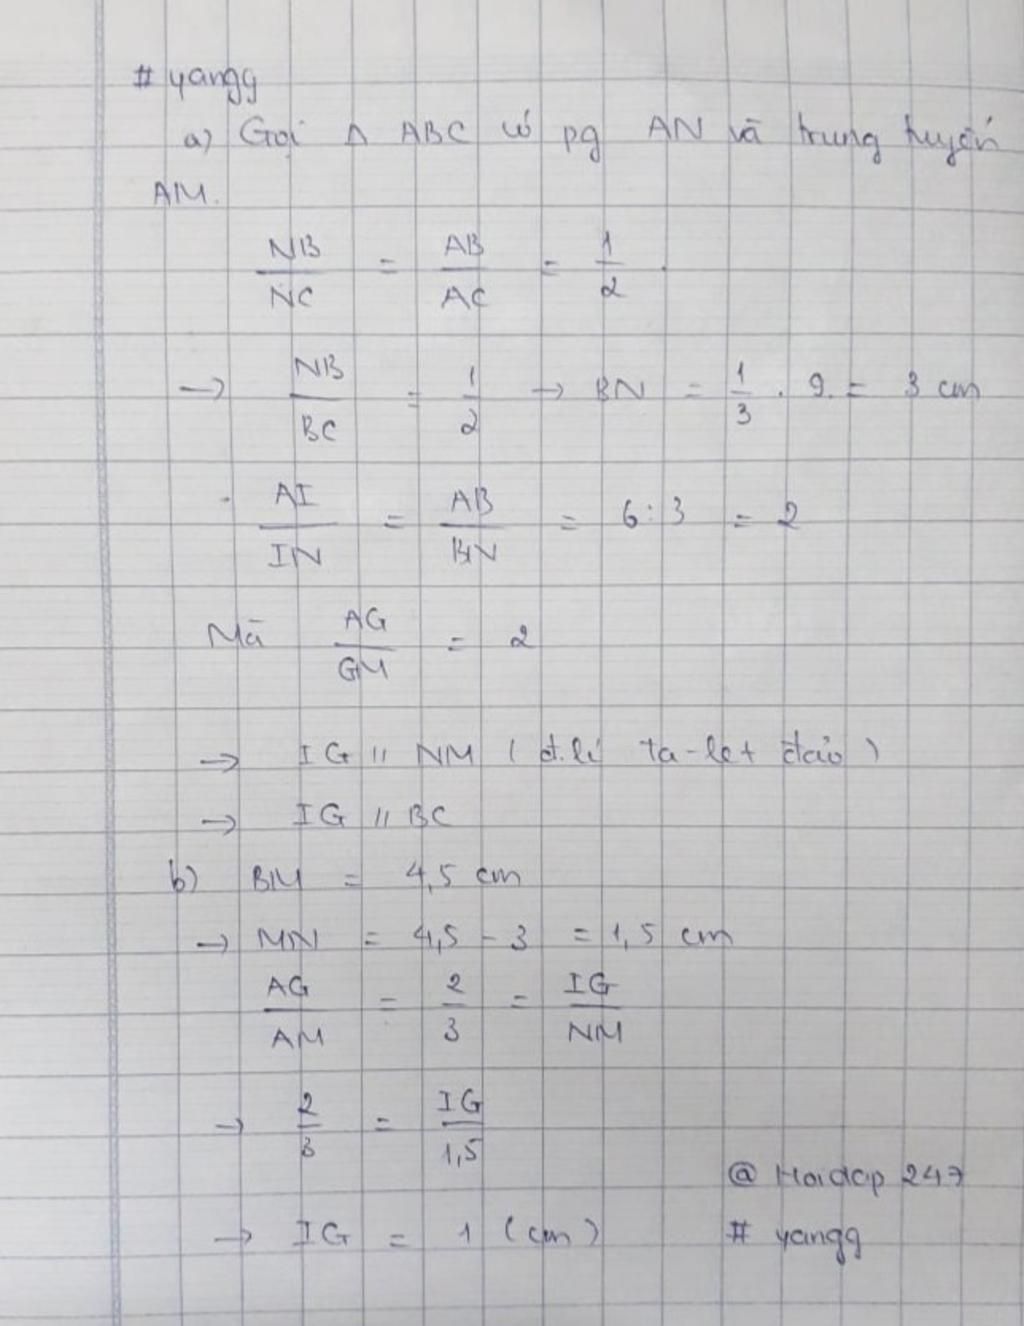 # yangg
a) Gọi Δ ABC có pg AN và trung tuyến
AM.
NB/NC = AB/AC = 1/2.
→ NB/BC = 1/2 → BN = 1/3 . 9 = 3 cm
AI/IN = AB/BN = 6 : 3 = 2
Mà AG/GM = 2
→ IG // NM ( đ.lí ta-let đảo )
→ IG // BC
b) BM = 4,5 cm
→ MN = 4,5 - 3 = 1,5 cm
AG/AM = 2/3 = IG/NM
→ 2/3 = IG/1,5
@ Hoidap 247
→ IG = 1 (cm)
# yangg